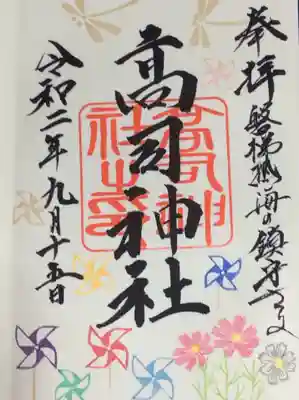 奉拝 磐梯熱海の鎮守
高司神社
高司神社之印
令和二年九月十五日